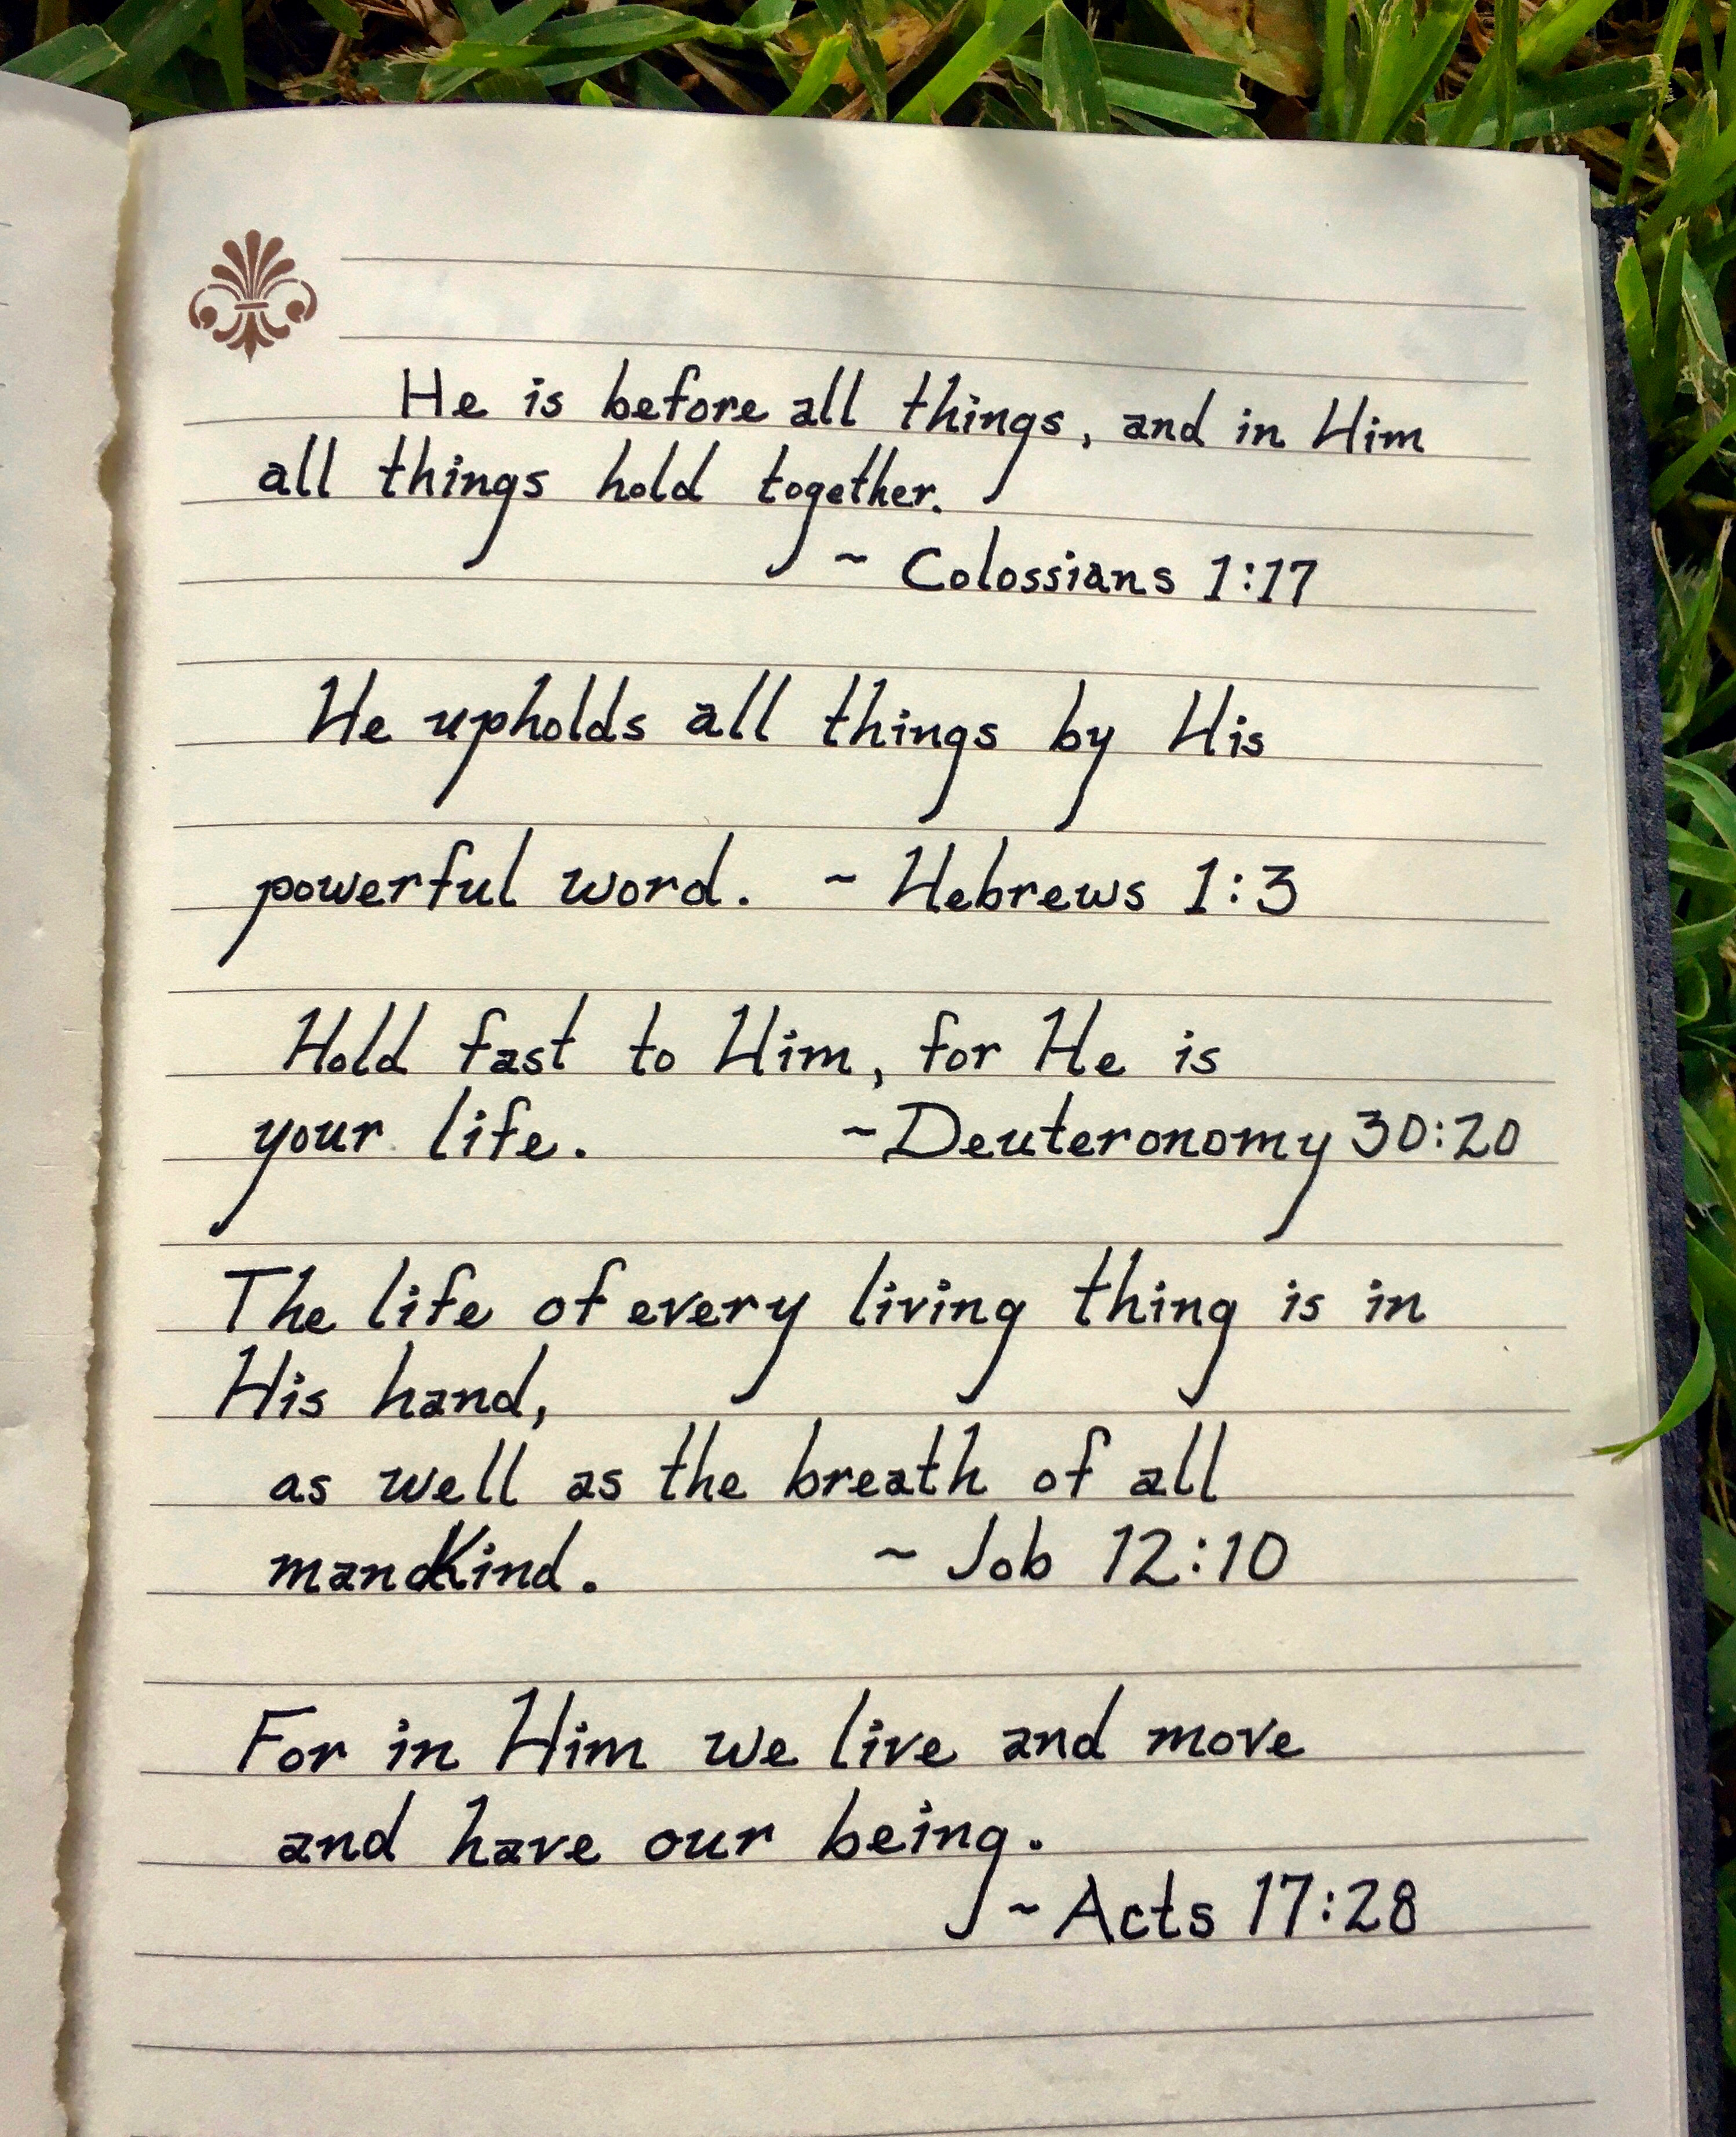 He is before all things, and in Him
all things hold together.
~ Colossians 1:17
He upholds all things by His
powerful word. ~ Hebrews 1:3
Hold fast to Him, for He is
your life. ~Deuteronomy 30:20
The life of every living thing is in
His hand,
as well as the breath of all
mankind. ~ Job 12:10
For in Him we live and move
and have our being.
~Acts 17:28